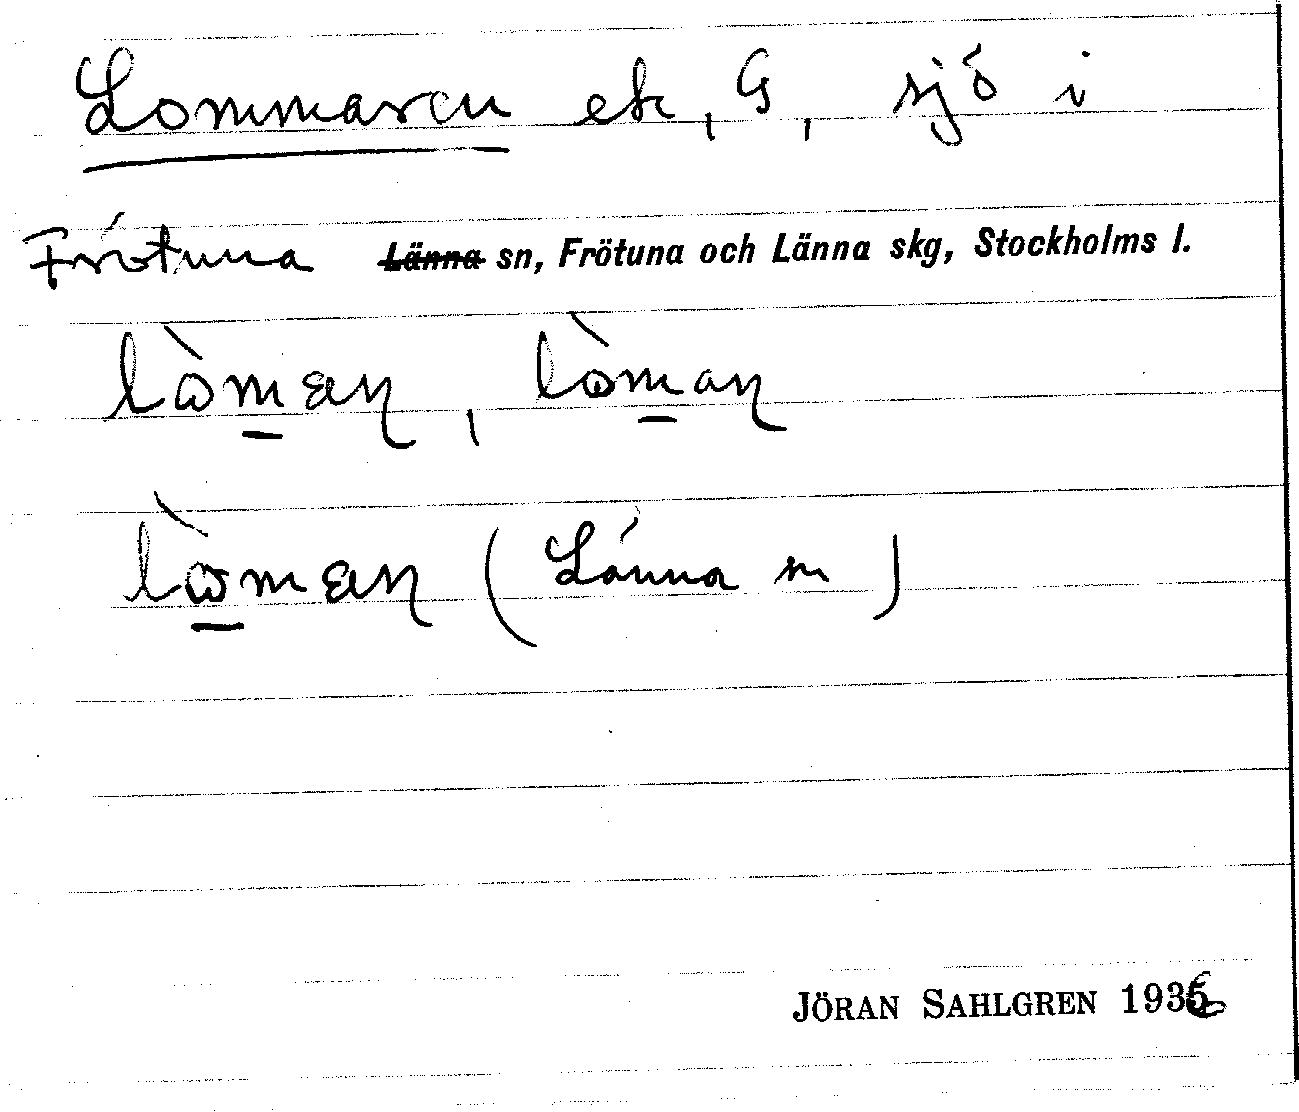 Lommaren ek, G, sjö i
Frötuna Länna sn, Frötuna och Länna skg, Stockholms l.
lò̀man, lòman
lòman (Länna sn)
JÖRAN SAHLGREN 1936